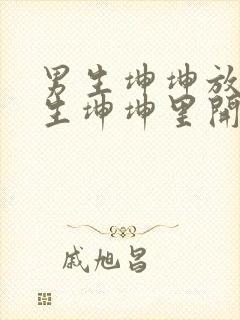 男生坤坤放
生坤坤里開
戚旭昌